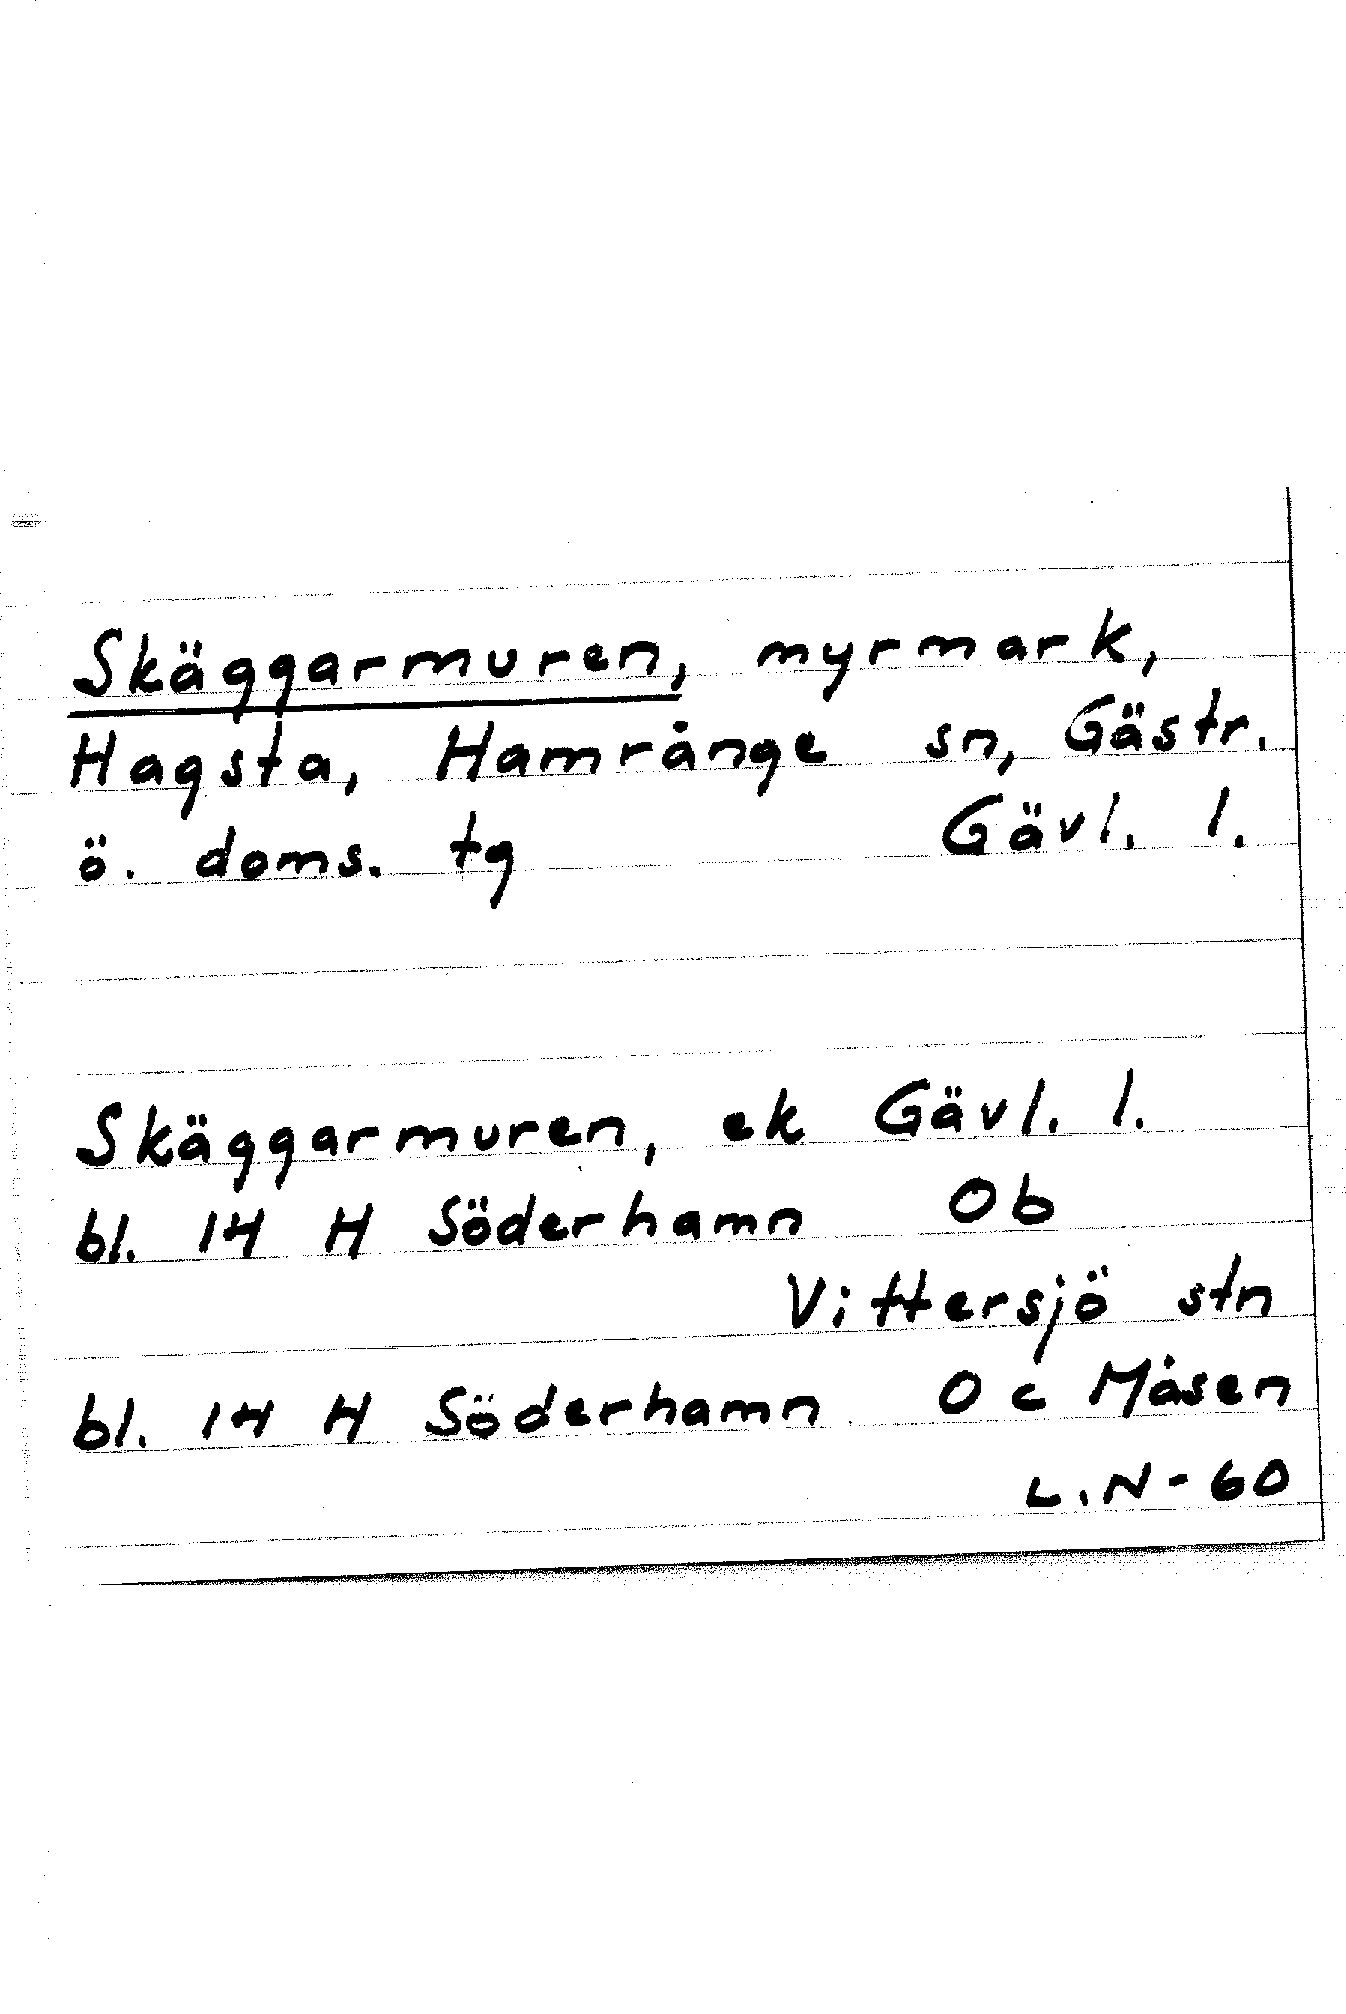 Skäggarmuren, myrmark,
Hagsta, Hamrånge sn, Gästr.
ö. doms. tg Gävl. l.
Skäggarmuren, ek Gävl. l.
bl. 14 H Söderhamn 0b
Vittersjö stn
bl. 14 H Söderhamn 0c Måsen
L.N-60